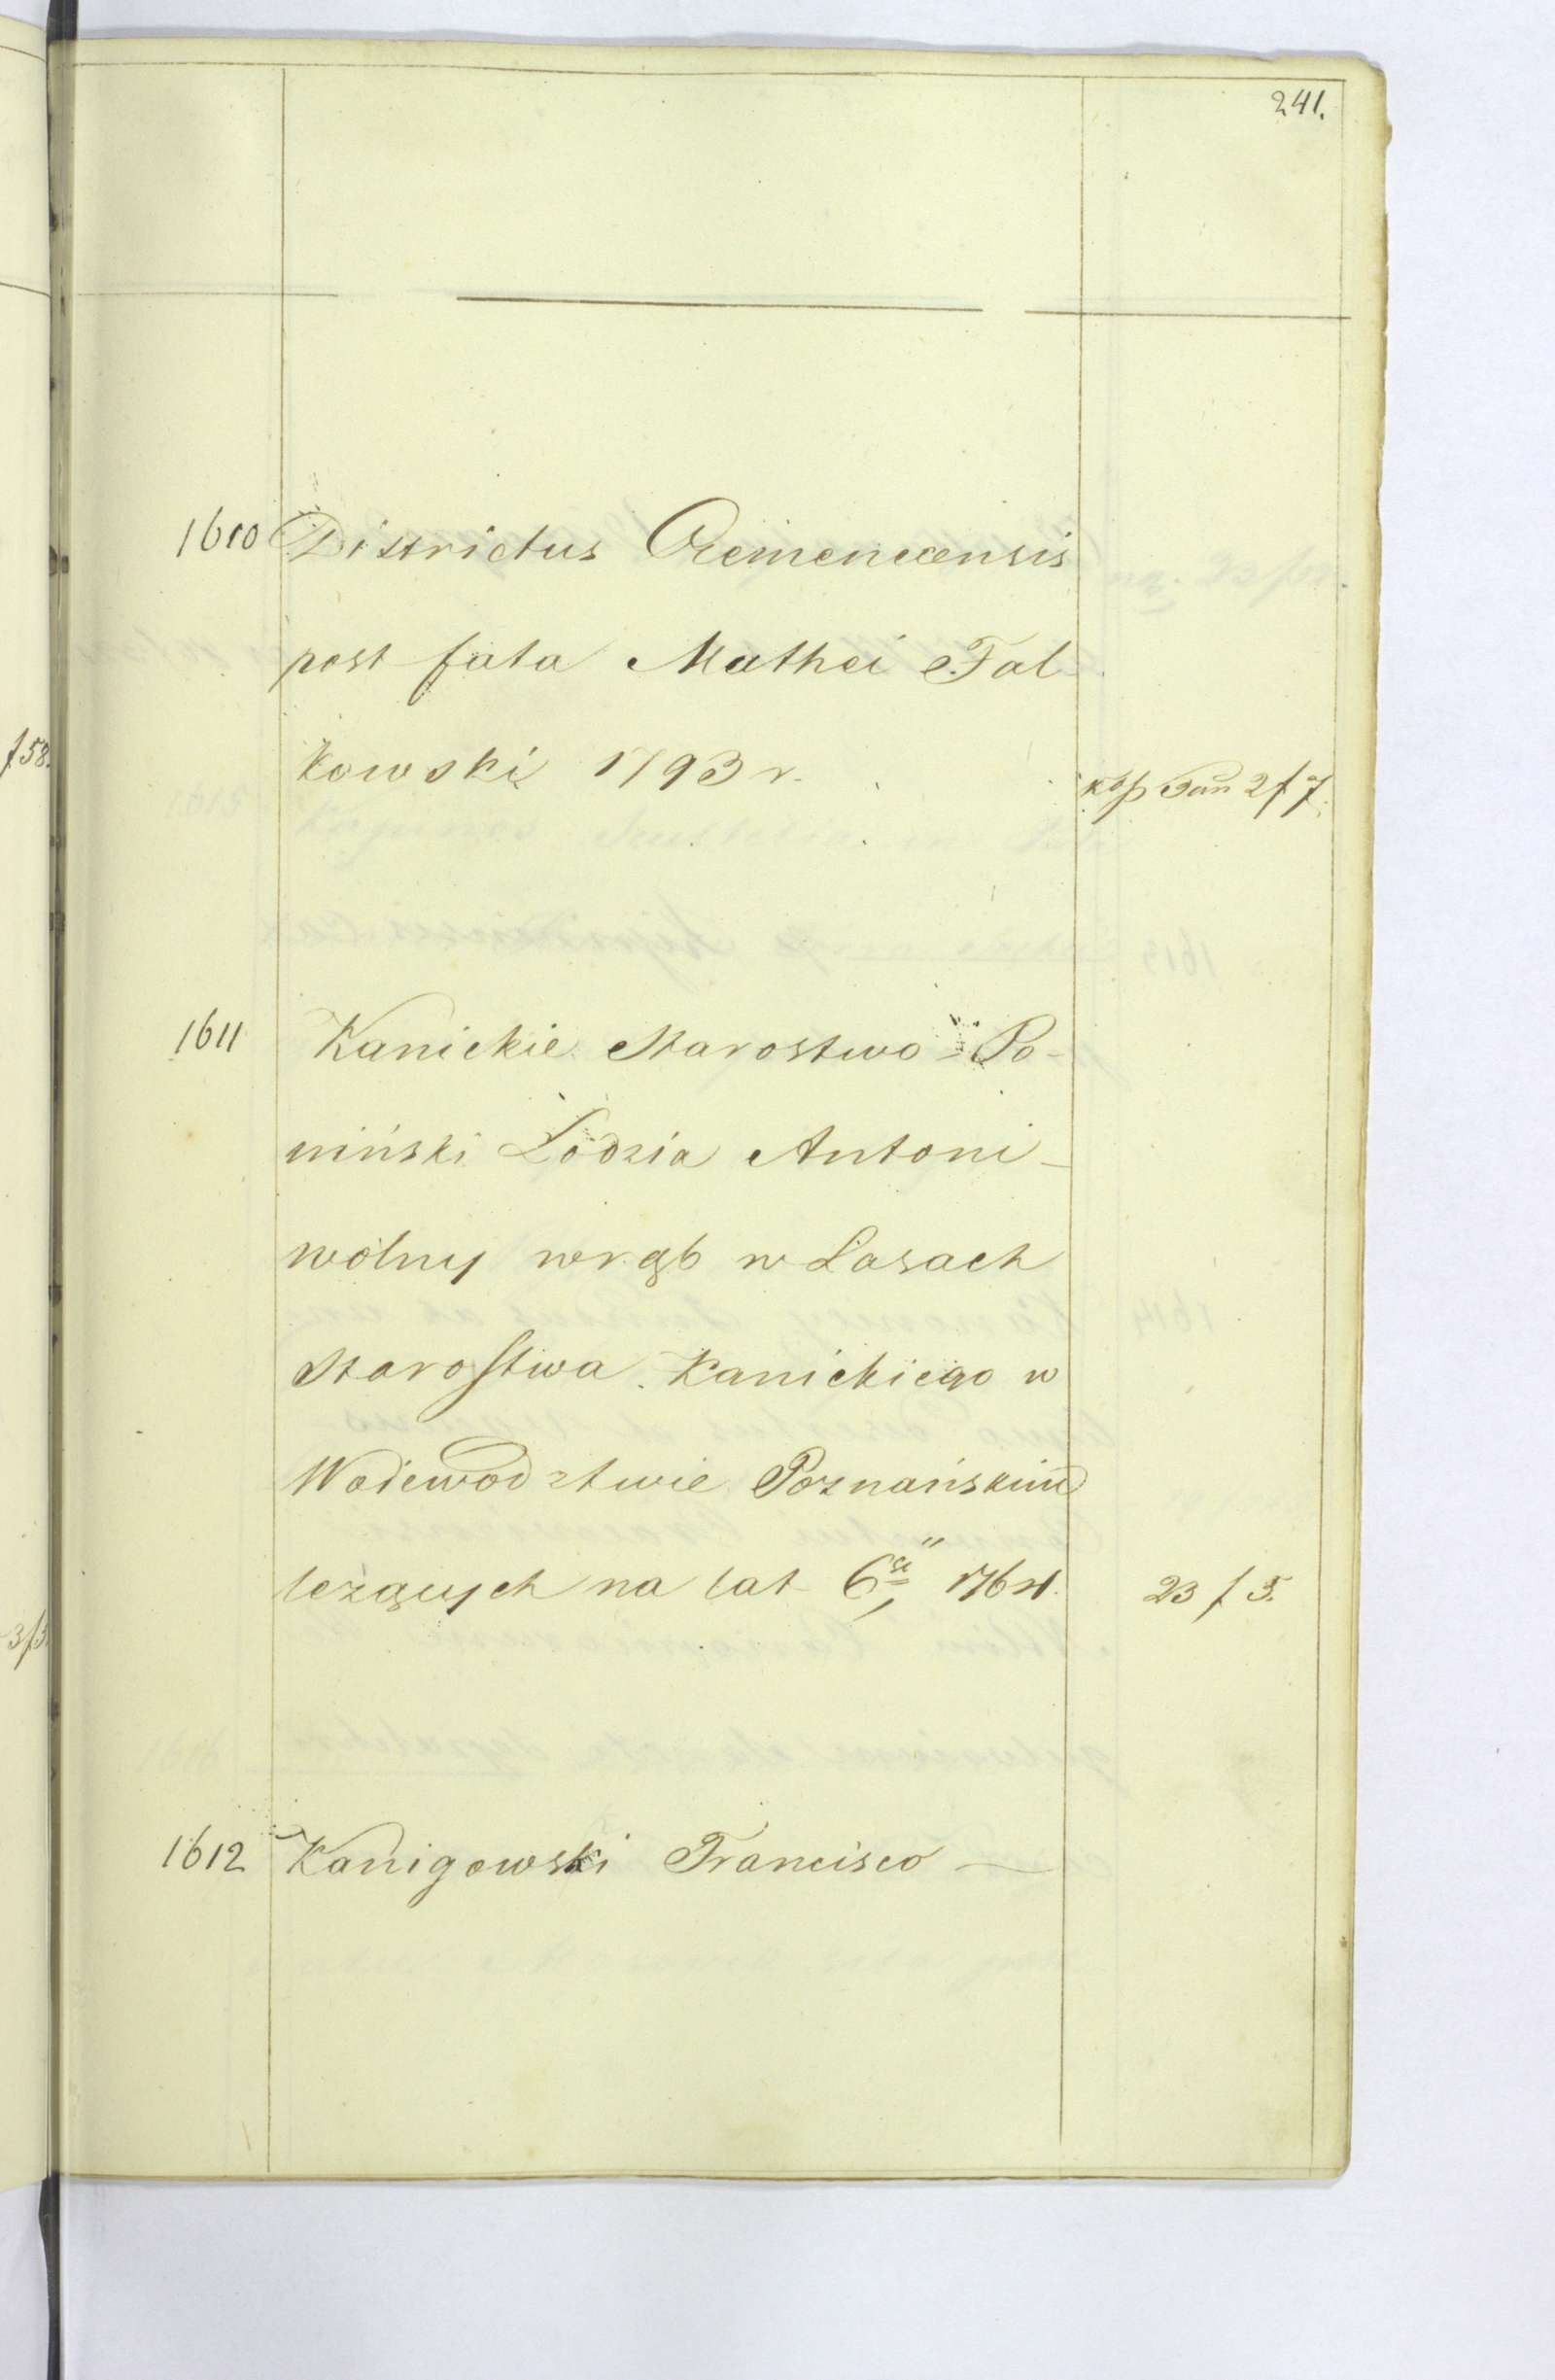 241.
1610 Districtus Cremenecensis
post fata Mathei Fal
kowski 1793 r. 2 f 7.
1611 Kanickie Starostwo = Po-
niński Łodzia Antoni -
wolny wrąb w Lasach
Starostwa Kanickiego w
Wojewodztwie Poznańskim
leżących na lat 6 23 f 5.
1612 Kanigowski Francisco —
f 58.
3 f 3.